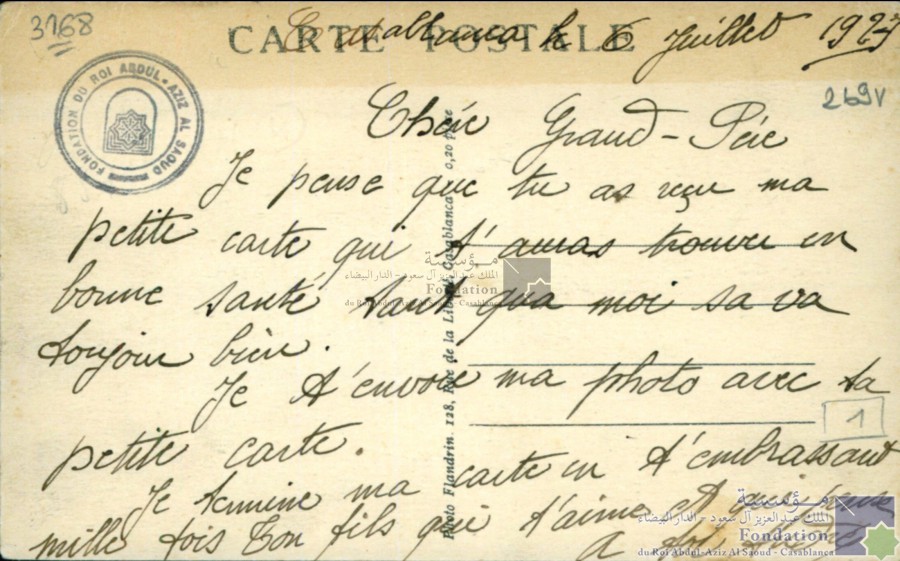 3168
CARTE POSTALE
Casablanca le 6 Juillet 1927
FONDATION DU ROI ABDUL-AZIZ AL SAOUD
269v
Chére Grand-Pére
Je pense que tu as reçu ma
petite carte qui t'auras trouver en
bonne santé tant qua moi sa va
toujour bien.
Je t'envoie ma photo avec ta
petite carte.
1
Je termine ma carte en t'embrassant
mille fois Ton fils qui t'aime et qui pense
A
Photo Flandrin. 128, Rue de la Liberté Casablanca 0,20
مؤسسة
الملك عبد العزيز آل سعود - الدار البيضاء
Fondation
du Roi Abdul-Aziz Al Saoud - Casablanca
مؤسسة
الملك عبد العزيز آل سعود - الدار البيضاء
Fondation
du Roi Abdul-Aziz Al Saoud - Casablanca